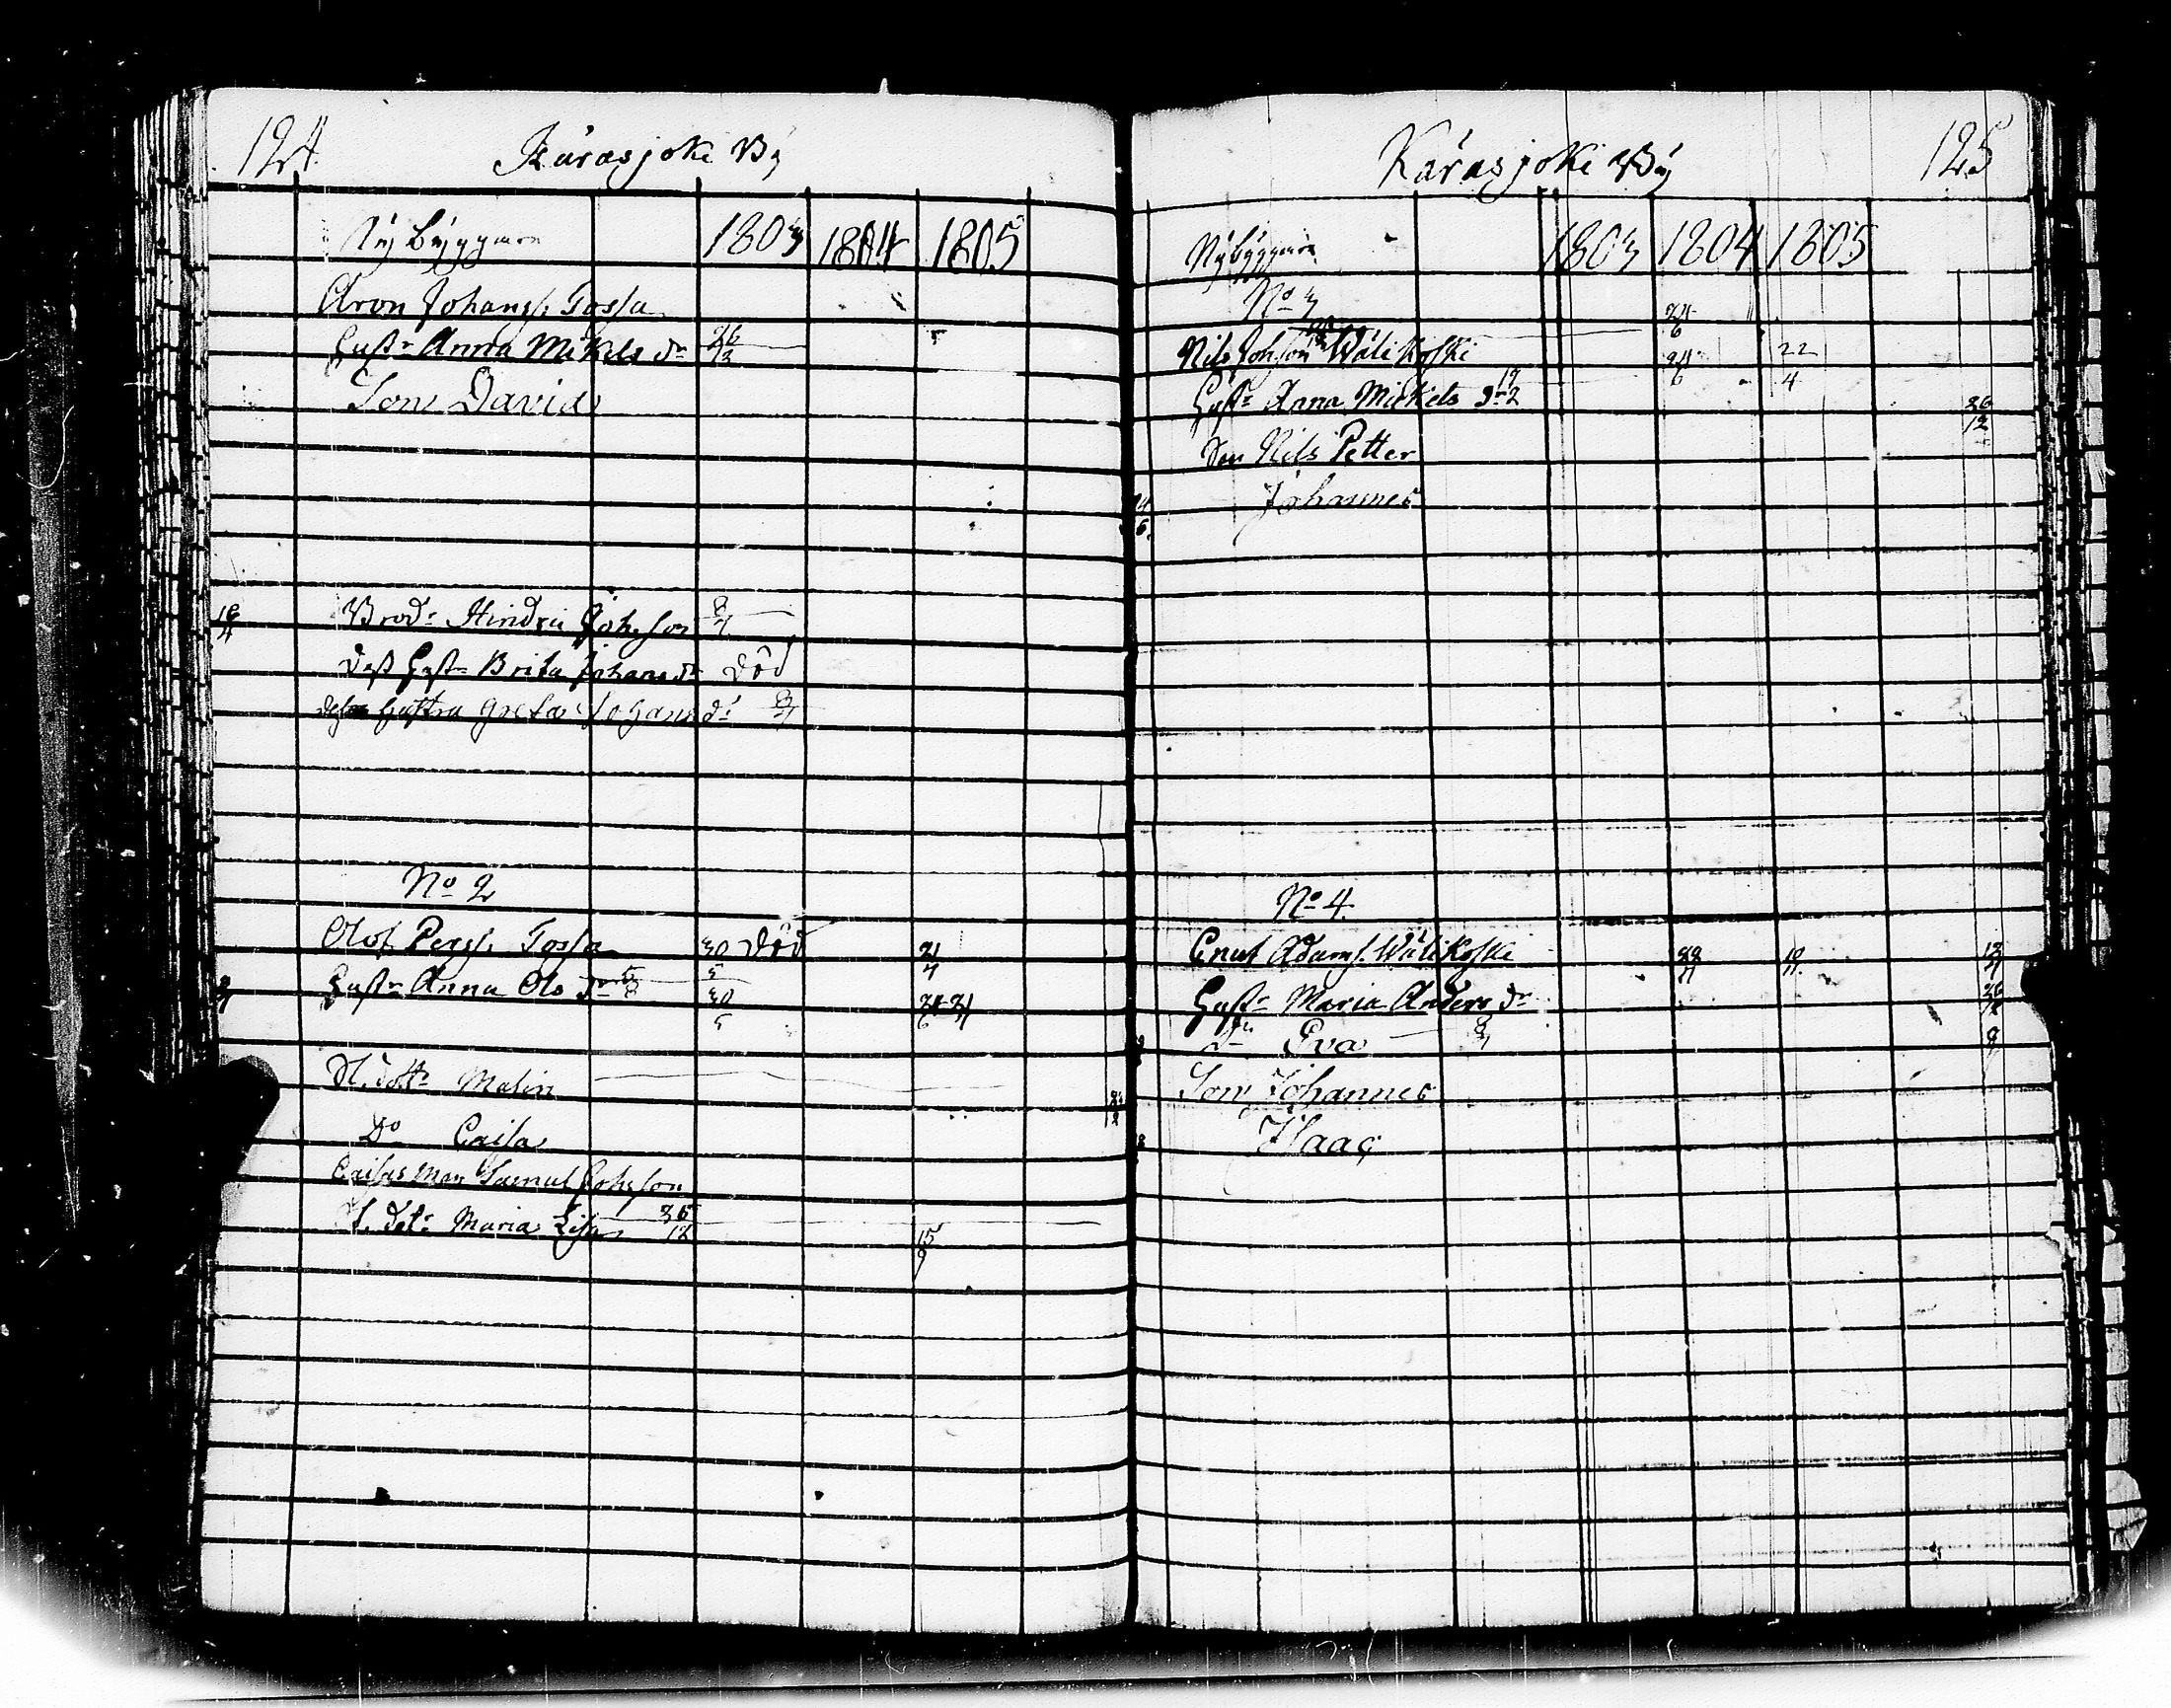 124
Kårasjoki By
Nybyggare 1803 1804 1805
Aron Johanss. Tossa
Hustr Anna Mikels dr 26/12
Son David
18/4 Brodr Hindric Johsson 8/4
dess Hustr Brita Johans dr död
dess hustru Greta Johans dr
No 2
Olof Perss. Tossa 30/5 död 21/4
Hustr Anna Ols dr 30/5
D. dottr Malin
Do Caisa
Caisas Man Samuel Johsson
S. dotr Maria Lisa 26/12 15/9
Kårasjoki By
125
Nybyggare 1803 1804 1805
No 3
Nils Johsson Wälikoski 24/6
Hustr Anna Mickels dr 24/6 22/4
Son Nils Petter 26/12
Johannes
No 4.
Enut Adams. Wälikoski
Hustr Maria Anders dr
Dr Eva
Son Johannes
Isaac